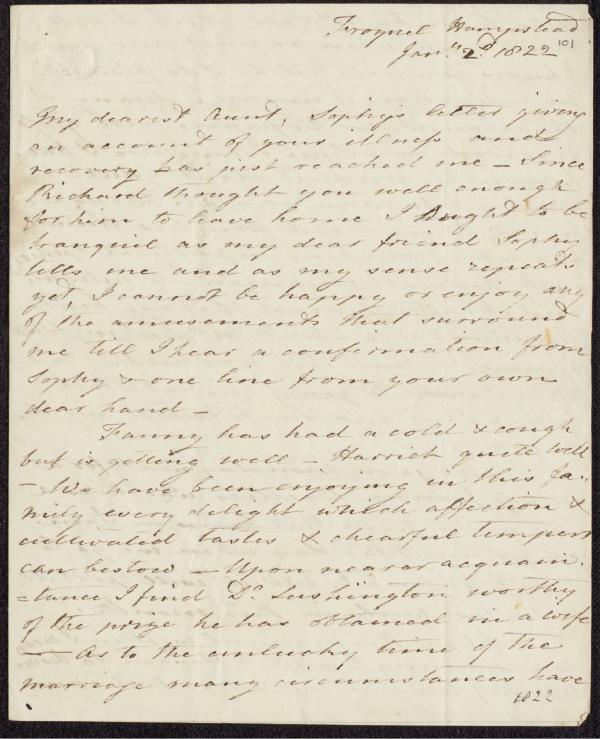 Frognel Hampstead
Jan.y 2.d 1822
101
My dearest Aunt, Sophy's letter giving
an account of your illness and
recovery has just reached me – Since
Richard thought you well enough
for him to leave home I ought to be
tranquil as my dear friend Sophy
tells me and as my sense repeats
yet, I cannot be happy or enjoy any
of the amusements that surround
me till I hear a confirmation from
Sophy & one line from your own
dear hand –
Fanny has had a cold & cough
but is getting well – Harriet quite well
– We have been enjoying in this fa-
mily every delight which affection &
cultivated tastes & chearful tempers
can bestow – Upon nearer acquain:
=tance I find Dr Lushington worthy
of the prize he has obtained in a wife
– As to the unlucky time of the
marriage many circumstances have
1822